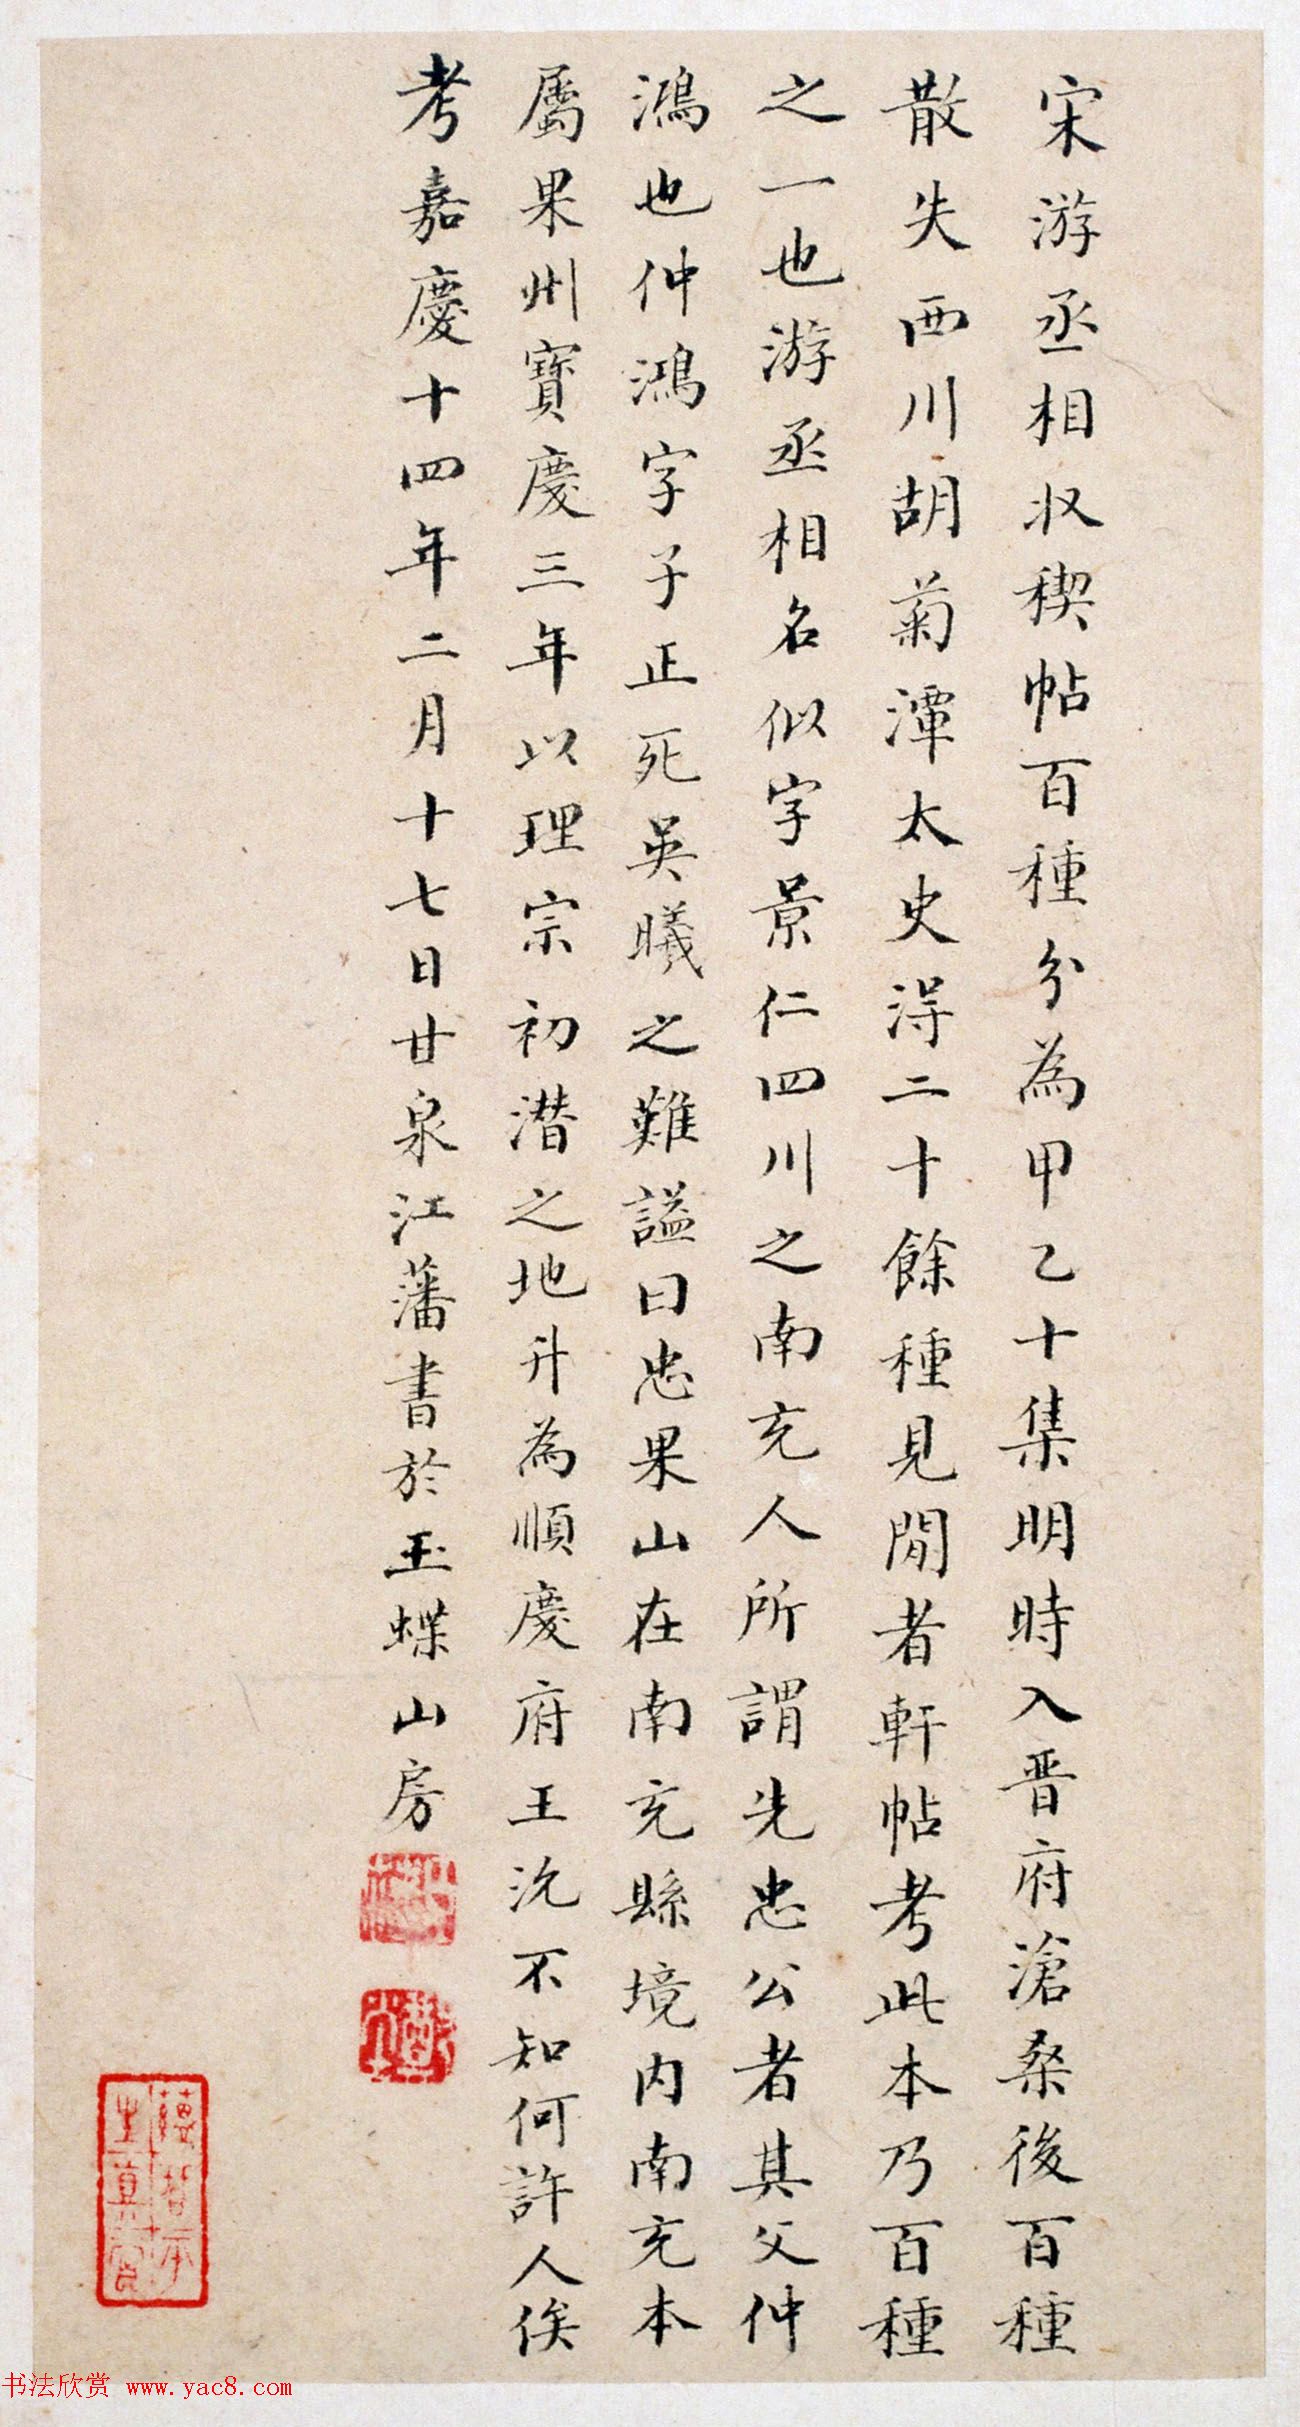 宋游丞相收稧帖百種分為甲乙十集明時入晋府滄桒後百種
散失西川胡菊潭太史淂二十餘種見閒者軒帖考此本乃百種
之一也游丞相名似字景仁四川之南充人所謂先忠公者其父仲
鴻也仲鴻字子正死吳曦之難謚曰忠果山在南充縣境内南充本
屬果州寶慶三年以理宗初潜之地升為順慶府王沇不知何許人俟
考嘉慶十四年二月十七日甘泉江藩書於玉蝶山房
书法欣赏 www.yac8.com